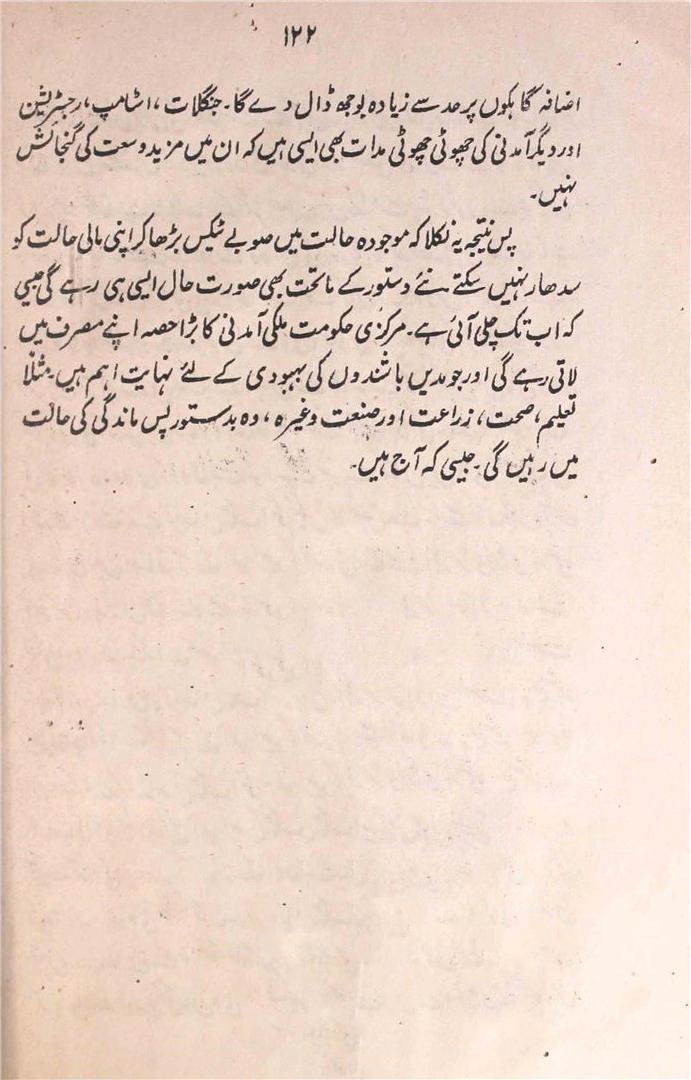 ۱۲۲
اضافہ گاہکوں پر حد سے زیادہ بوجھ ڈال دے گا۔ جنگلات، اسٹامپ، رجسٹریشن
اور دیگر آمدنی کی چھوٹی چھوٹی مدات بھی ایسی ہیں کہ ان میں مزید وسعت کی گنجائش
نہیں۔
پس نتیجہ یہ نکلا کہ موجودہ حالت میں صوبے ٹیکس بڑھا کر اپنی مالی حالت کو
سدھار نہیں سکتے نئے دستور کے ماتحت بھی صورت حال ایسی ہی رہے گی جیسی
کہ اب تک چلی آئی ہے۔ مرکزی حکومت ملکی آمدنی کا بڑا حصہ اپنے مصرف میں
لاتی رہے گی اور جو مدیں باشندوں کی بہبودی کے لئے نہایت اہم ہیں۔ مثلاً
تعلیم، صحت، زراعت اور صنعت وغیرہ، وہ بدستور پس ماندگی کی حالت
میں رہیں گی۔ جیسی کہ آج ہیں۔